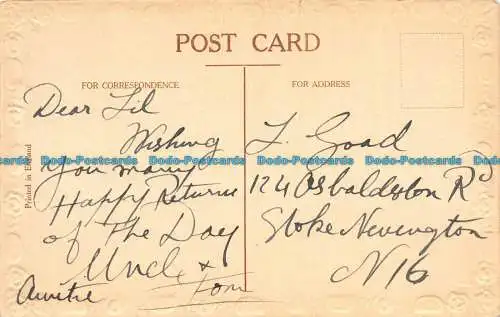 POST CARD
FOR CORRESPONDENCE
FOR ADDRESS
Dear Lil
Wishing
you many
Happy Returns
of The Day
Uncle & Tom
Auntie
L. Goad
124 Osbaldeston Rd
Stoke Newington
N16
Printed in England
Dodo-Postcards Dodo-Postcards Dodo-Postcards Dodo-Postcards Dodo-Postcards Dodo-Postcards